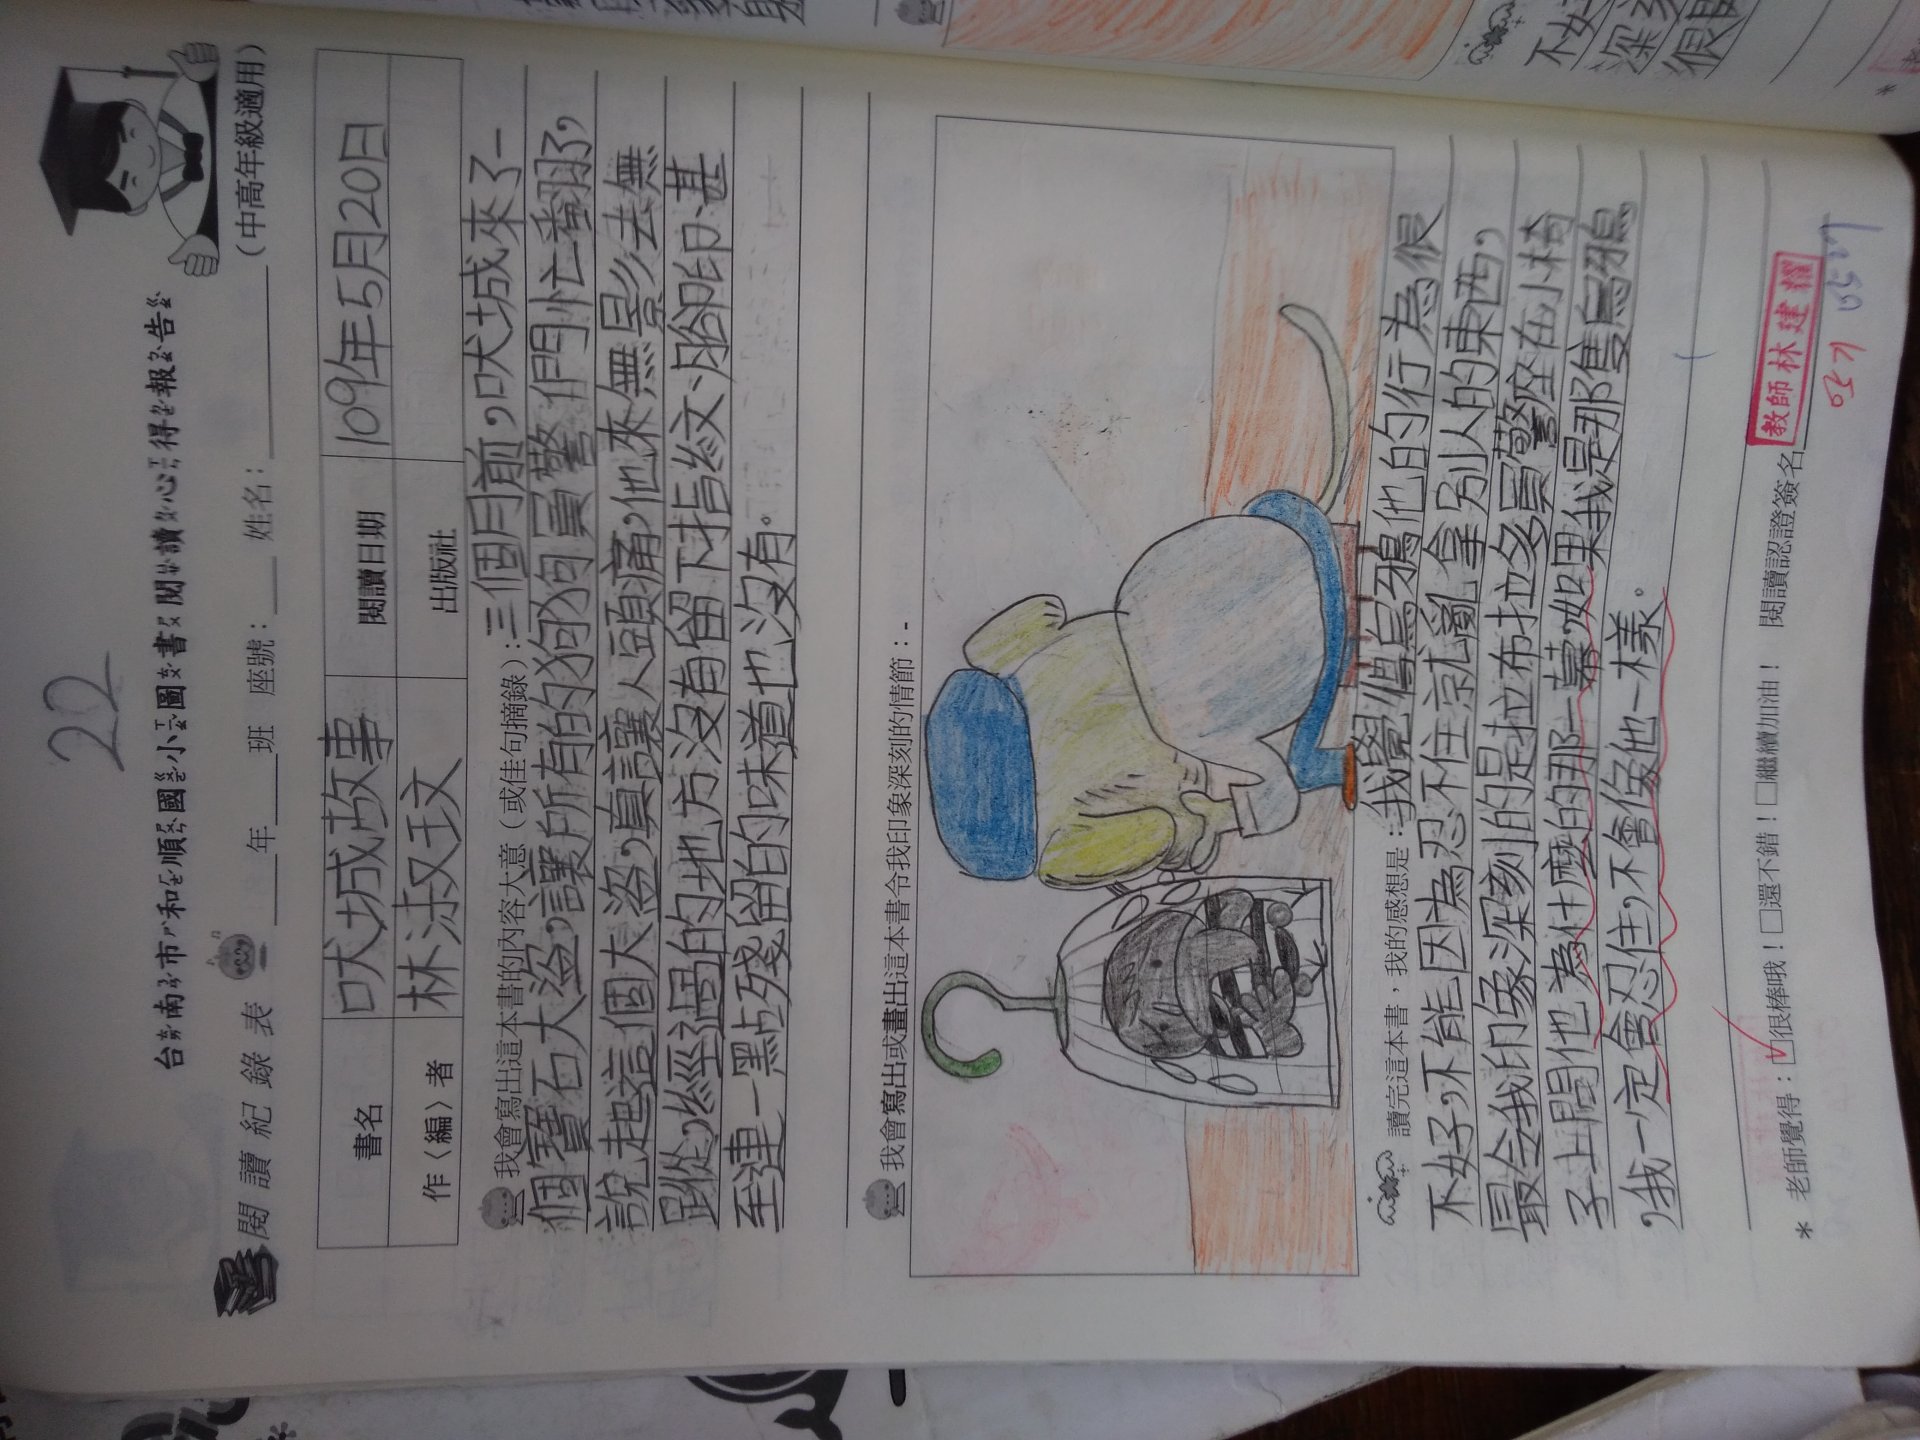 22
台南市和順國小圖書閱讀心得報告
閱讀紀錄表 ___年___班 座號：___ 姓名：______（中高年級適用）
書名 吠城故事 閱讀日期 109年5月20日
作〈編〉者 林淑玟 出版社
我會寫出這本書的內容大意（或佳句摘錄）：三個月前，吠城來了一
個寶石大盜，讓所有的狗狗員警們忙翻了，
說起這個大盜，真讓人頭痛，他來無影去無
蹤，經過的地方沒有留下指紋、腳印，甚
至連一點殘留的味道也沒有。
我會寫出或畫出這本書令我印象深刻的情節：
讀完這本書，我的感想是：我覺得烏鴉他的行為很
不好，不能因為忍不住就拿別人的東西，
最令我印象深刻的是拉布拉多員警座在小椅
子上問他為什麼的那一幕，如果我是那隻烏鴉
，我一定會忍住，不會像他一樣。
* 老師覺得：☑很棒哦！□還不錯！□繼續加油！ 閱讀認證簽名
教師林建
不好
深刻
很
*